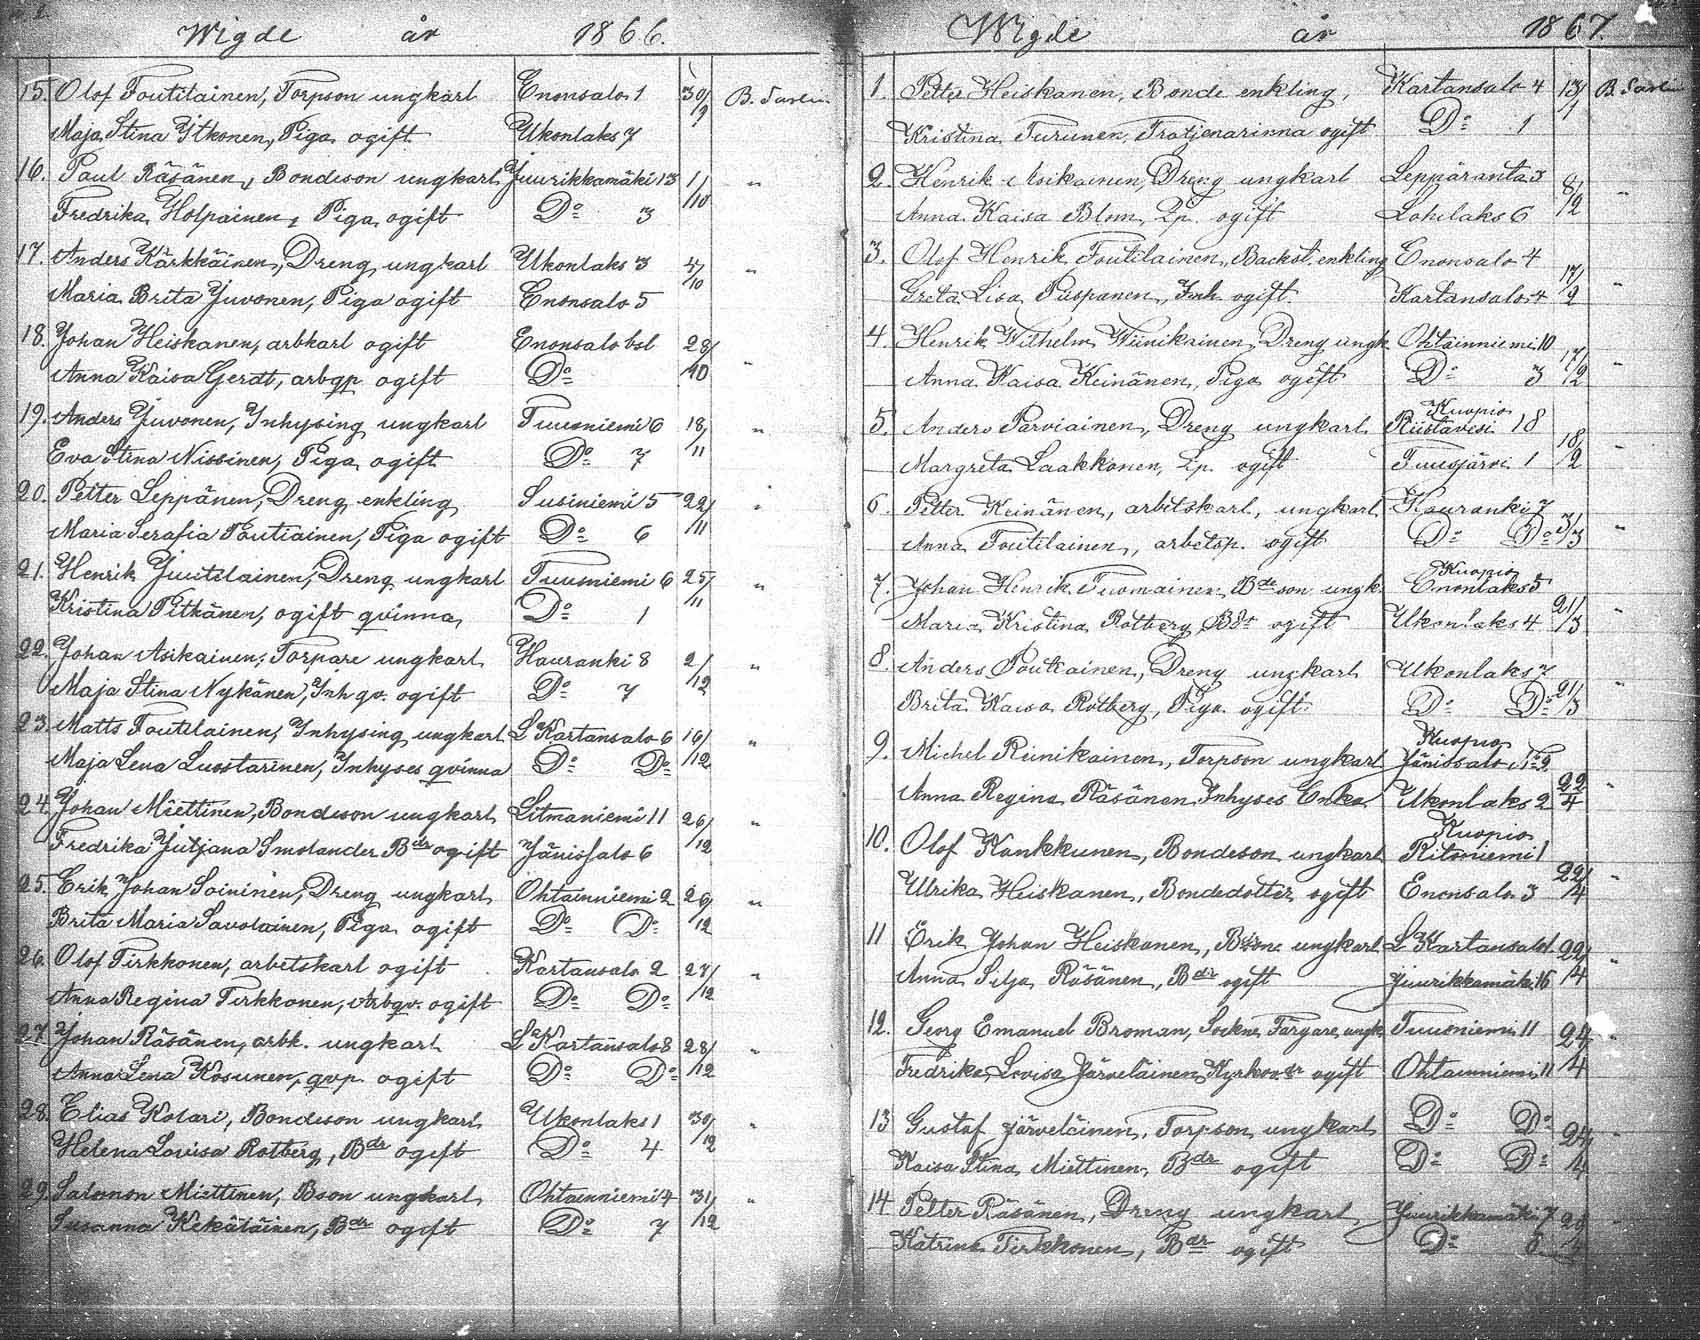 Wigde år 1866.
15. Olof Toutilainen, Torpson ungkarl Enonsalo 1 30/9 B. Savlen
Maja Stina Ytkonen, Piga ogift Ukonlaks 7
16. Paul Räsänen, Bondeson ungkarl Juurikkamäki 13 1/10 "
Fredrika Holpainen, Piga ogift Do 3
17. Anders Kärkkäinen, Dreng ungkarl Ukonlaks 3 4/10 "
Maria Brita Juvonen, Piga ogift Enonsalo 5
18. Johan Heiskanen, arbkarl ogift Enonsalo bsl 28/10 "
Anna Kaisa Gerdt, arbqp ogift Do
19. Anders Juvonen, Inhysing ungkarl Tuusniemi 6 18/11 "
Eva Stina Nissinen, Piga ogift Do 7
20. Petter Leppänen, Dreng enkling Susiniemi 5 22/11 "
Maria Serafia Poutiainen, Piga ogift Do 6
21. Henrik Juutilainen, Dreng ungkarl Tuusniemi 6 25/11 "
Kristina Pitkänen, ogift qvinna Do 1
22. Johan Asikainen, Torpare ungkarl Hauranki 8 2/12 "
Maja Stina Nykänen, Inh qv. ogift Do 7
23. Matts Toutilainen, Inhysing ungkarl La Kartansalo 6 16/12 "
Maja Lena Luostarinen, Inhyses qvinna Do Do
24. Johan Miettinen, Bondeson ungkarl Litmaniemi 11 26/12 "
Fredrika Juljana Smolander Bdr ogift Jänissalo 6
25. Erik Johan Soininen, Dreng ungkarl Ohtainniemi 2 26/12 "
Brita Maria Savolainen, Piga ogift Do Do
26. Olof Tirkkonen, arbetskarl ogift Kartansalo 2 27/12 "
Anna Regina Tirkkonen, Arbqv. ogift Do Do
27. Johan Räsänen, arbk. ungkarl La Kartansalo 8 28/12 "
Anna Lena Kosunen, qvp. ogift Do Do
28. Elias Kolari, Bondeson ungkarl Ukonlaks 1 30/12 "
Helena Lovisa Rotberg, Bdr ogift Do 4
29. Salomon Miettinen, Bson ungkarl Ohtainniemi 4 31/12 "
Susanna Kekäläinen, Bdr ogift Do 7
Wigde år 1867.
1. Petter Heiskanen, Bonde enkling, Kartansalo 4 13/1 B. Savlen
Kristina Turunen, Tratjenarinna ogift Do 1
2. Henrik Asikainen, Dreng ungkarl Leppäranta 3 8/2 "
Anna Kaisa Blom, Tp. ogift Lohilaks 6
3. Olof Henrik Toutilainen, Backst. enkling Enonsalo 4 17/2 "
Greta Lisa Puspanen, Inh. ogift. Kartansalo 4
4. Henrik Wilhelm Wiinikainen, Dreng ungk Ohtainniemi 10 17/2 "
Anna Kaisa Keinänen, Piga ogift Do 3
5. Anders Parviainen, Dreng ungkarl Kuopio Riistavesi 18 18/2 "
Margreta Laakkonen, Tp. ogift Tuusjärvi 1
6. Petter Keinänen, arbetskarl, ungkarl Hauranki 7 3/3 "
Anna Toutilainen, arbetsp. ogift Do Do
7. Johan Henrik Tuomainen, Bde son ungk. Kuopio Enonlaks 5 21/3 "
Maria Kristina Rotberg, Bdr ogift Ukonlaks 4
8. Anders Poutiainen, Dreng ungkarl Ukonlaks 7 21/3 "
Brita Kaisa Rotberg, Piga ogift Do Do
9. Michel Riinikainen, Torpson ungkarl Kuopio Jänissalo No 2 22/4 "
Anna Regina Räsänen Inhyses Enka Ukonlaks 2
10. Olof Kankkunen, Bondeson ungkarl Kuopio Ritoniemi 1 22/4 "
Ulrika Heiskanen, Bondedotter ogift Enonsalo 3
11 Erik Johan Heiskanen, Bson ungkarl La Kartansalo 1 22/4 "
Anna Silja Räsänen, Bdr ogift Juurikkamäki 16
12. Georg Emanuel Broman, Sockne Färgare ungk Tuusniemi 11 24/4
Fredrika Lovisa Järveläinen Kyrkov dr ogift Ohtainniemi 11
13 Gustaf Järveläinen, Torpson ungkarl Do Do 24/4 "
Kaisa Stina Miettinen, Bdr ogift Do Do
14 Petter Räsänen, Dreng ungkarl Juurikkamäki 7 28/4 "
Katrina Tirkkonen, Bdr ogift Do 8